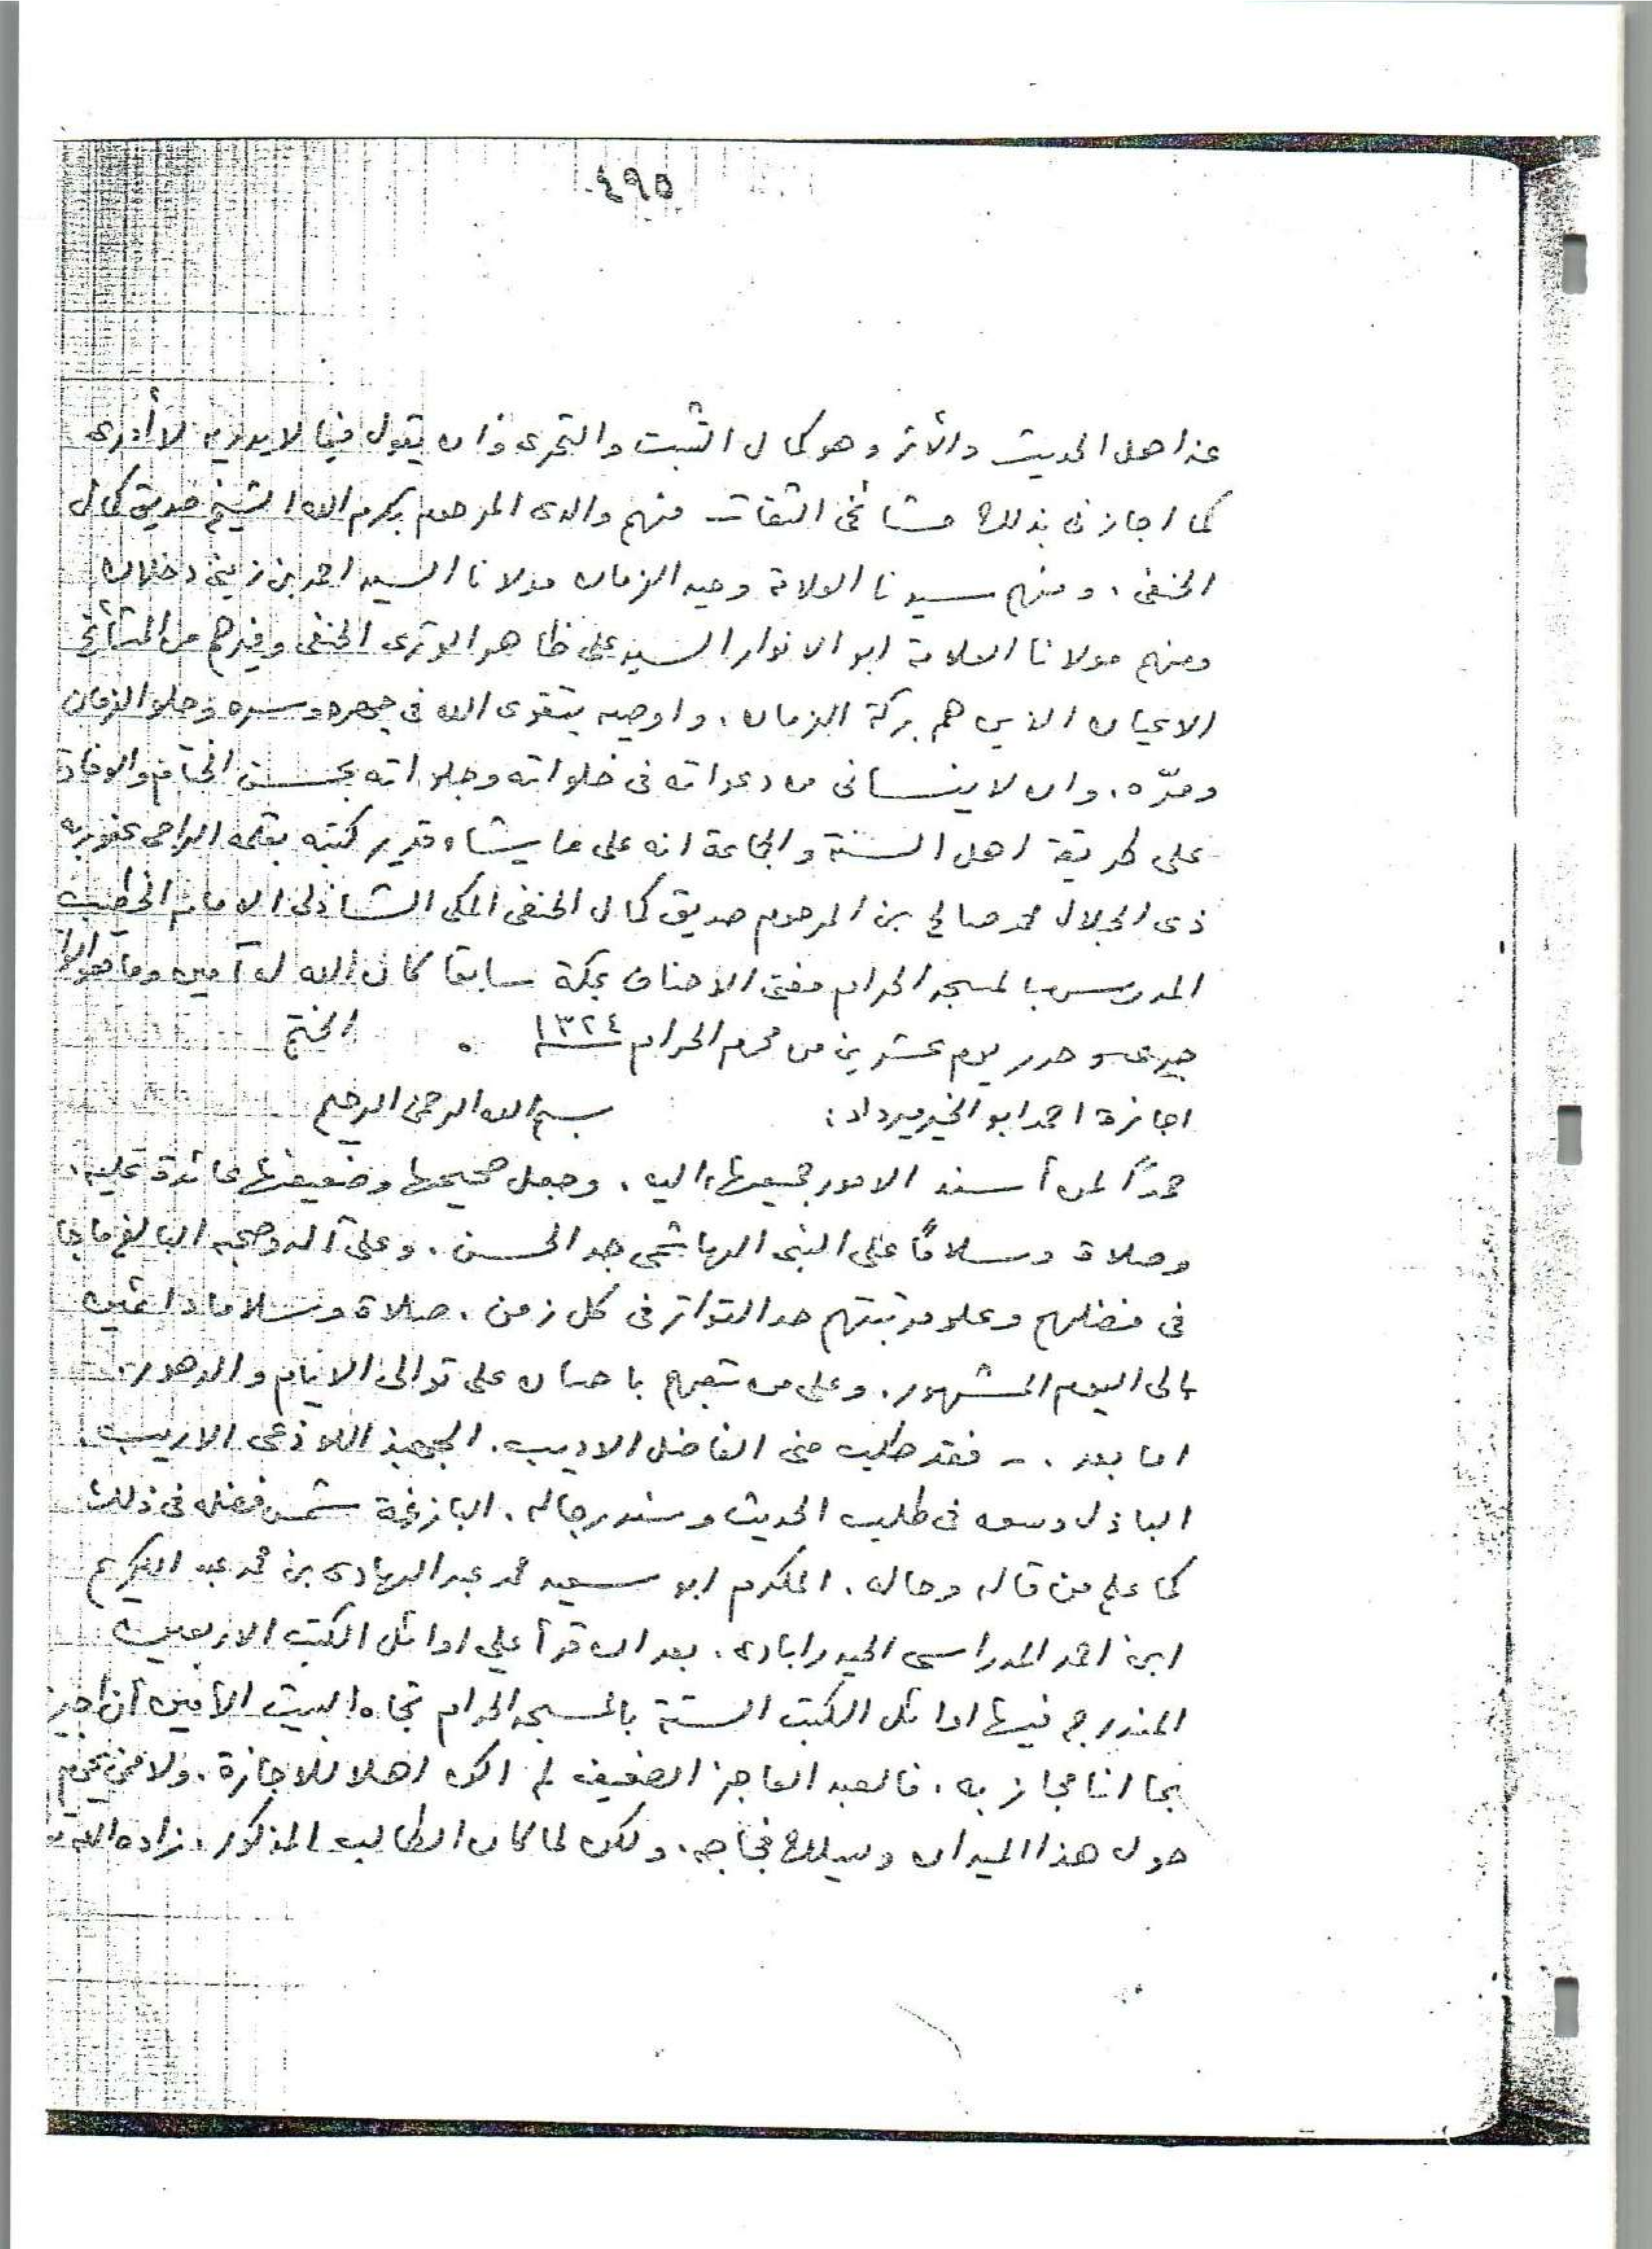 ٤٩٥
عند اهل الحديث والأثر وهو كمال التثبت والتحرى وان يقول فيما لا يدريه لا أدرى
كما اجازنى بذلك مشائخى الثقات منهم والدى المرحوم بكرم الله الشيخ صديق كمال
الحنفى ، ومنهم سيدنا العلامة وحيد الزمان مولانا السيد احمد بن زينى دحلان
ومنهم مولانا العلامة ابو الانوار السيد على ظاهر الوترى الحنفى وغيرهم من المشائخ
الاعيان الذين هم بركة الزمان ، واوصيه بتقوى الله فى جهره وسره وحلو الزمان
ومرّه ، وان لا ينسانى من دعواته فى خلواته وجلواته بحسن الختام والوفاة
على طريقة اهل السنة والجماعة انه على ما يشاء قدير كتبه بقلمه الراجى عفو ربه
ذى الجلال محمد صالح بن المرحوم صديق كمال الحنفى المكى الشاذلى الامام الخطيب
المدرس بالمسجد الحرام مفتى الاحناف بمكة سابقا كان الله له آمين
وحرر يوم عشرين من محرم الحرام ١٣٢٤ . الختم
اجازة احمد ابو الخير ميرداد : بسم الله الرحمن الرحيم
حمداً لمن أسند الامور جميعها اليه ، وجعل صحيحها وضعيفها عائدة عليه ،
وصلاة وسلاماً على النبى الهاشمى جد الحسن ، وعلى آله وصحبه البالغ ما جا
فى فضلهم وعلو مرتبتهم حد التواتر فى كل زمن ، صلاة وسلاما دائمين
الى اليوم المشهور ، وعلى من تبعهم باحسان على توالى الايام والدهور .
اما بعد . - فقد طلب منى الفاضل الاديب ، الجهبذ اللاذعى الاريب
الباذل وسعه فى طلب الحديث وسند رجاله ، البازغة شمس فضله فى ذلك
كما علم من قاله وحاله ، المكرم ابو سعيد محمد عبد الهادى بن محمد عبد الكريم
ابن احمد المدراسى الحيدرابادى ، بعد ان قرأ علي اوائل الكتب الاربعين
المندرج فيها اوائل الكتب الستة بالمسجد الحرام تجاه البيت الأمين أن اجيز
بما انا مجاز به ، فالعبد العاجز الضعيف لم اكن اهلا للاجازة ، ولا ممن يحوم
حول هذا الميدان ويسلك فجاجه ، ولكن لما كان الطالب المذكور ، زاده الله